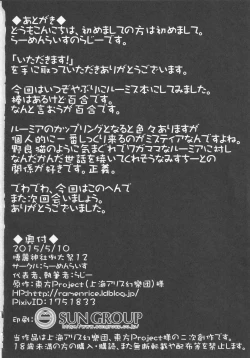 ◆あとがき◆
どうもこんにちは、初めましての方は初めまして。
らーめんらいすのらじーです。
「いただきます！」
を手に取っていただきありがとうございます。
今回はいつぞやぶりにルーミス本にしてみました。
棒はあるけど百合です。
なんと言おうが百合です。
ルーミアのカップリングとなると色々ありますが
個人的に一番しっくり来るのがミスティアなんですよね。
野良猫のように気まぐれでワガママなルーミアに対して
なんだかんだ世話を焼いてくれそうなみすちーとの
関係が好きです。正義。
でわでわ、今回はこのへんで
また次回会いましょう。
ありがとうございました。
◆奥付◆
2015/5/10
博麗神社例大祭12
サークル：らーめんらいす
代表者、執筆者：らじー
原作：東方Project(上海アリス幻樂団)
HP:http://ramenrice.ldblog.jp/
PixivID:1751833
SUN GROUP
http://www.sungroup.co.jp
当作品は上海アリス幻樂団、東方Project様の二次創作です。
18歳未満の方の購入・購読、また無断転載や配布等を禁止します。